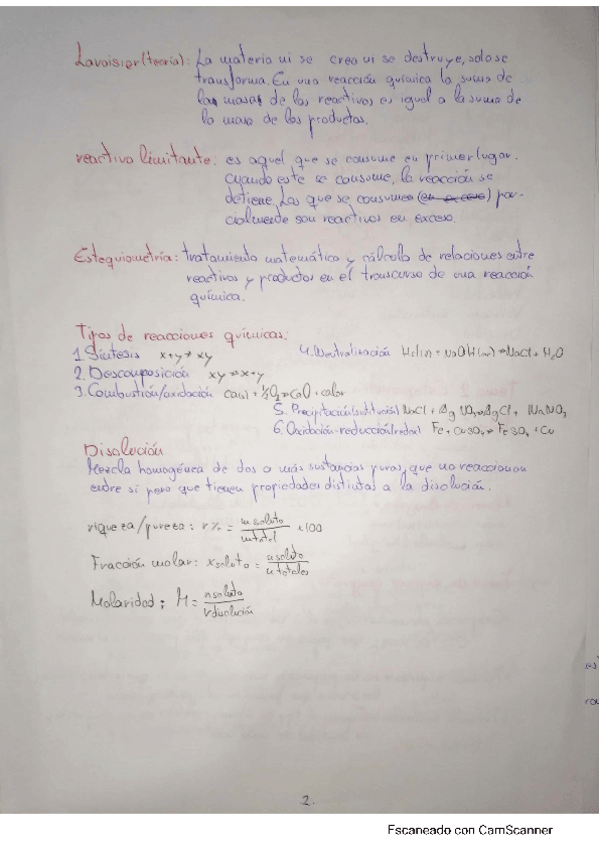 Lavoisier(teoría): La materia ni se crea ni se destruye, solo se
transforma. En una reacción química la suma de
las masas de los reactivos es igual a la suma de
la masa de los productos.
reactivo limitante: es aquel que se consume en primer lugar.
cuando este se consume, la reacción se
detiene. Los que se consumen (en exceso) par-
cialmente son reactivos en exceso.
Estequiometría: tratamiento matemático y cálculo de relaciones entre
reactivos y productos en el transcurso de una reacción
química.
Tipos de reacciones químicas:
1. Síntesis x+y → xy
4. Neutralización
2. Descomposición xy → x+y
3. Combustión/oxidación
5. Precipitación
6. Oxidación-reducción(redox) Fe + CuSO4 → FeSO4 + Cu
Disolución
Mezcla homogénea de dos o más sustancias puras, que no reaccionan
entre sí pero que tienen propiedades distintas a la disolución.
riqueza/pureza: r% = m soluto / m total x100
Fracción molar: x soluto = n soluto / n totales
Molaridad: M = n soluto / V disolución
2.
Escaneado con CamScanner